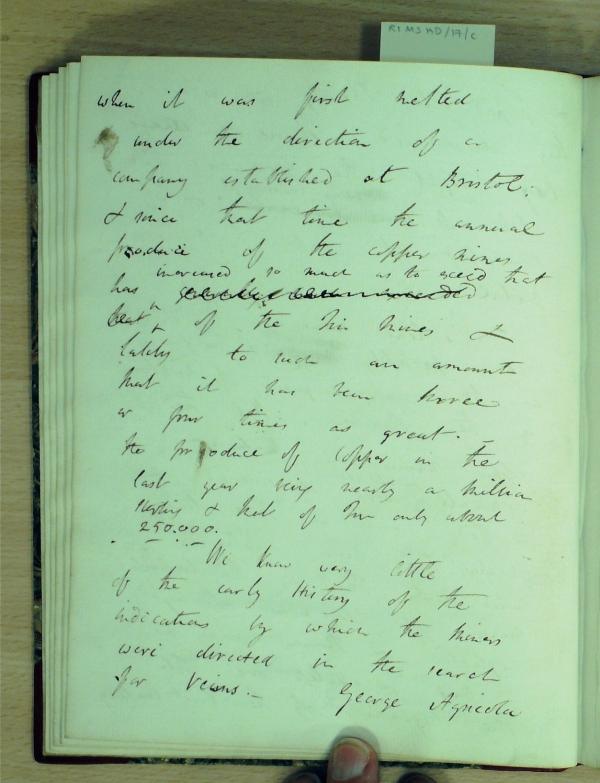 RI MS HD/17/c
when it was first melted
under the direction of a
company established at Bristol:
& since that time the annual
produce of the copper mines
increased so much as to exceed that
has
of the Tin mines &
lately to such an amount
that it has been three
or four times as great. –
the produce of Copper in the
last year being nearly a million
sterling & that of Tin only about
250.000.
We know very little
of the early History of the
indications by which the miners
were directed in the search
for Veins. – George Agricola